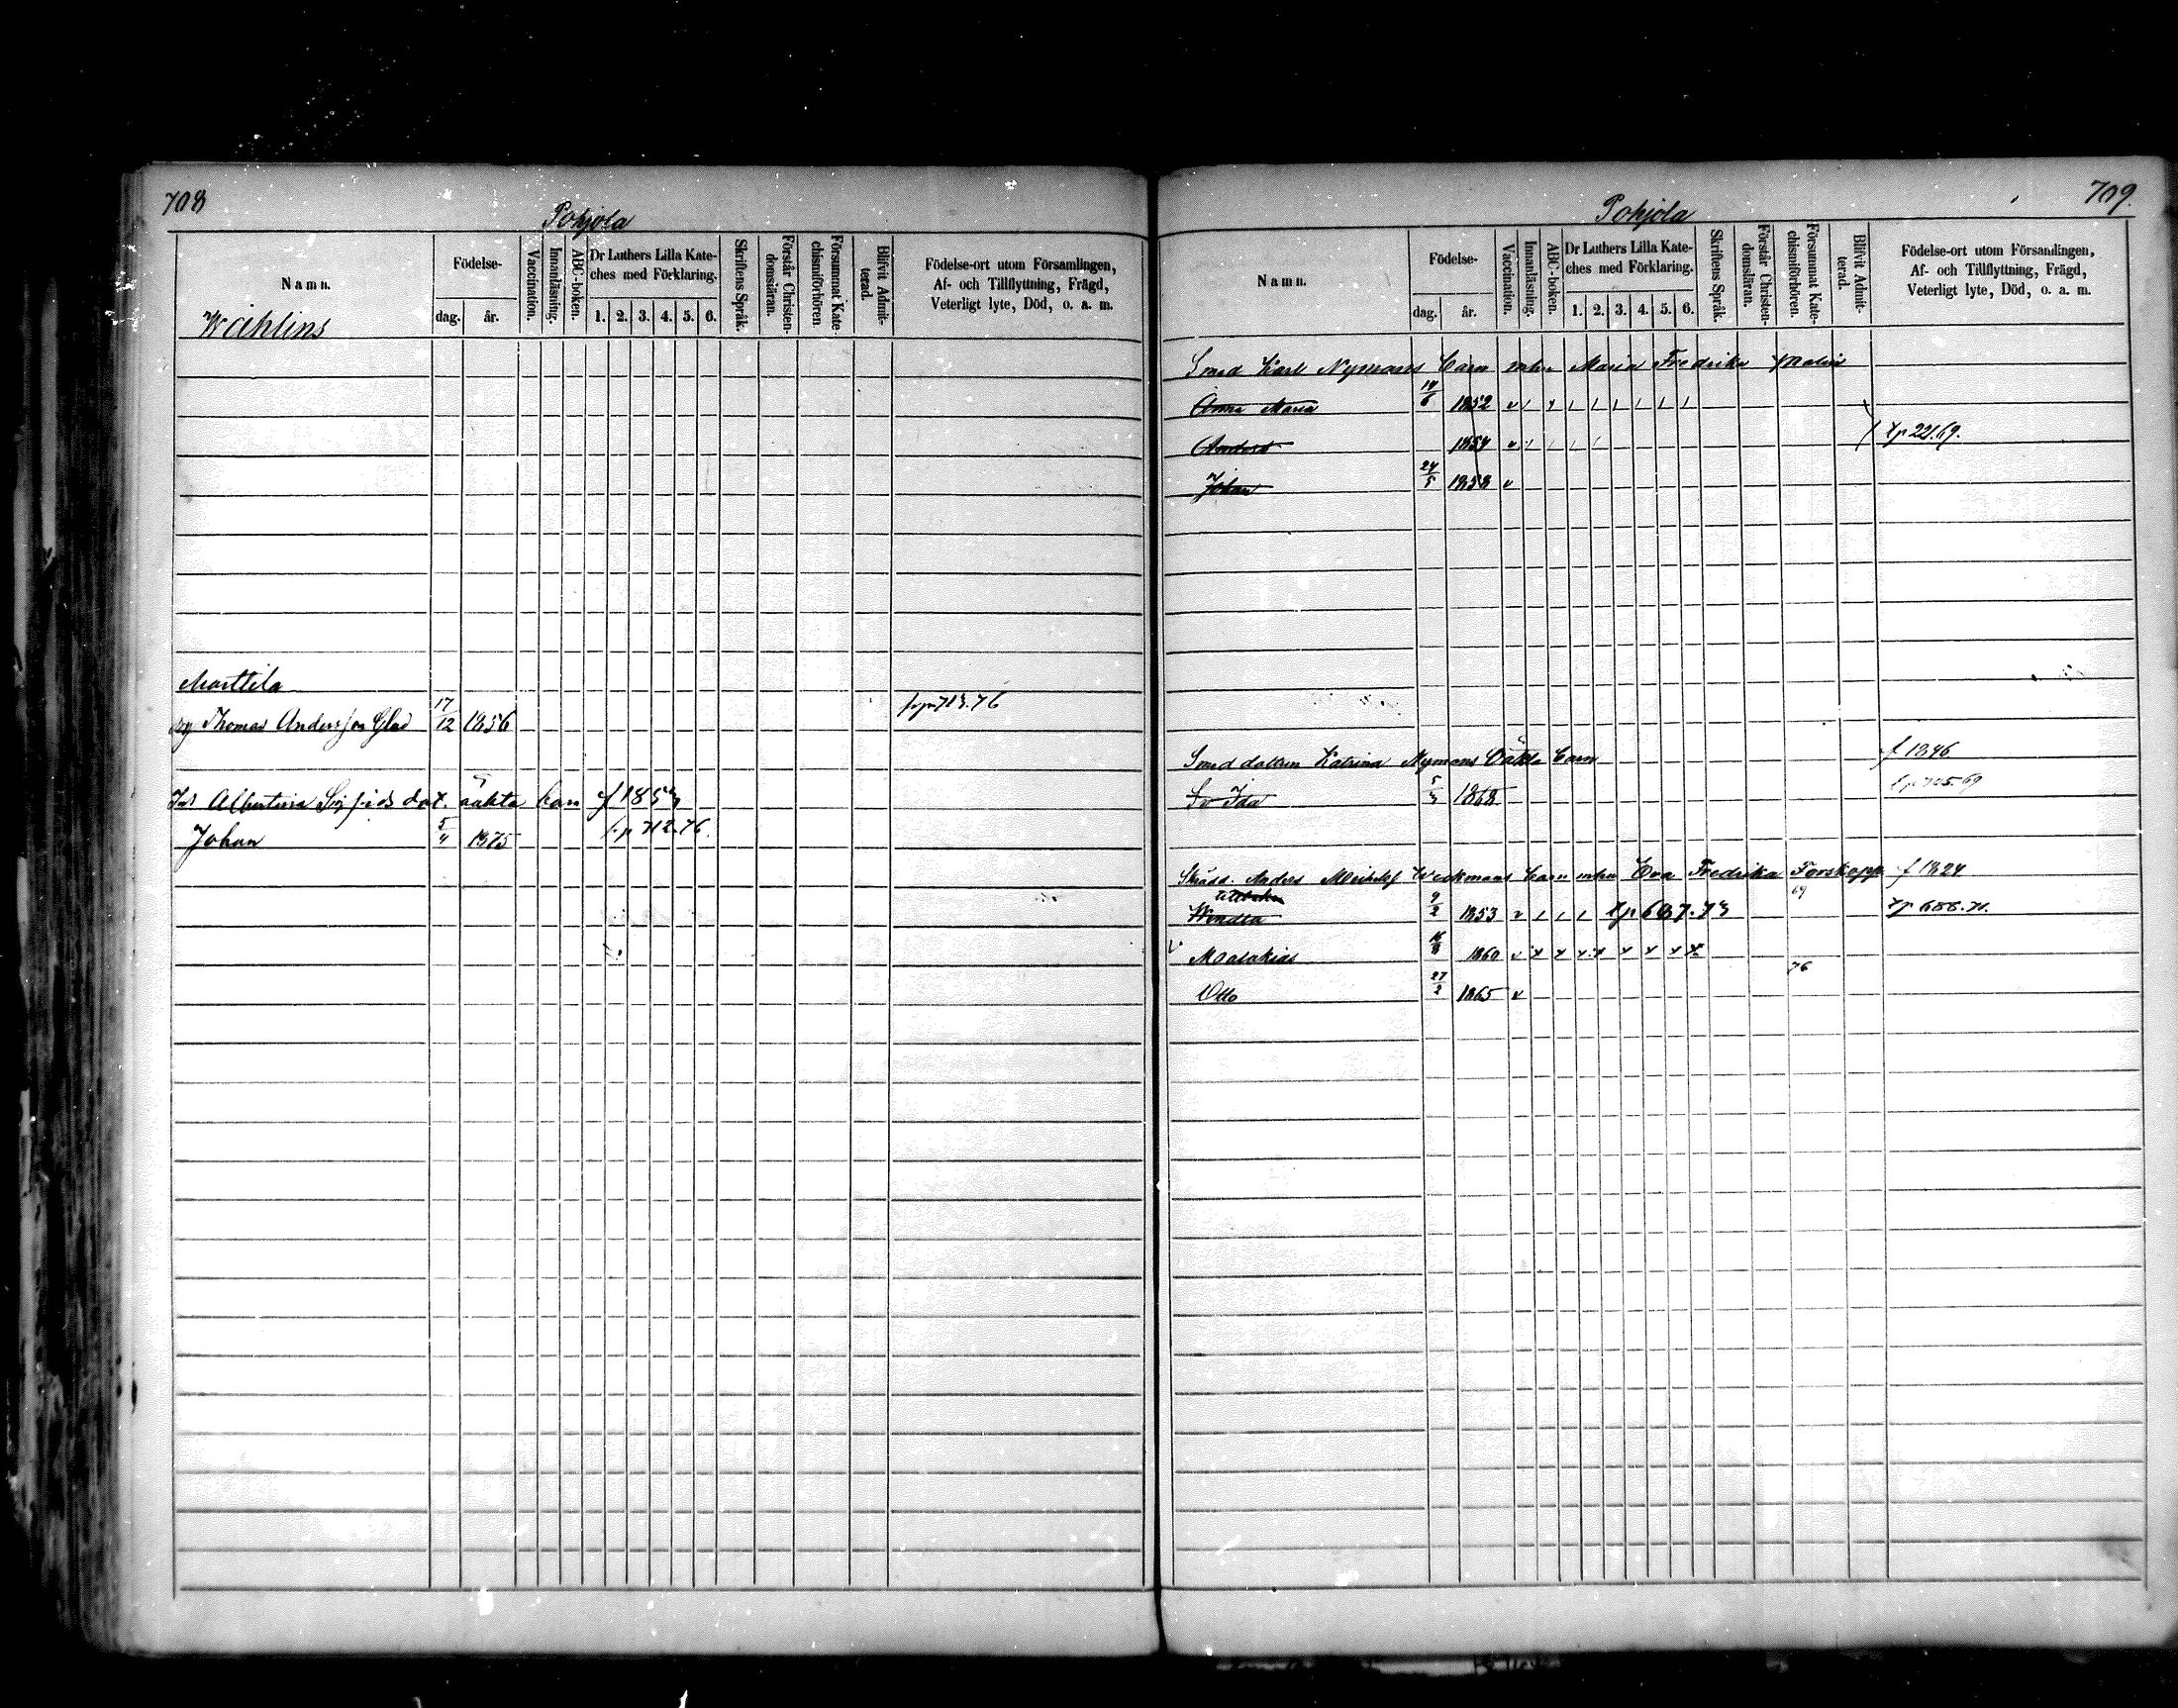 708
Pohjola
Namn.
Födelse-
dag.
år.
Vaccination.
Innanläsning.
ABC-boken.
Dr Luthers Lilla Kate-
ches med Förklaring.
1. 2. 3. 4. 5. 6.
Skriftens Språk.
Förstår Christen-
domsläran.
Försummat Kate-
chismiförhören
Blifvit Admit-
terad.
Födelse-ort utom Församlingen,
Af- och Tillflyttning, Frägd,
Veterligt lyte, Död, o. a. m.
Wahlins
Marttila
Thomas Andersson Glad 17/12 1856
Albertina Sigfrids dot. oäkta barn f 1853
Johan 5/4 1875 712.76.
709.
Pohjola
Namn.
Födelse-
dag.
år.
Vaccination.
Innanläsning.
ABC-boken.
Dr Luthers Lilla Kate-
ches med Förklaring.
1. 2. 3. 4. 5. 6.
Skriftens Språk.
Förstår Christen-
domsläran.
Försummat Kate-
chismiförhören.
Blifvit Admit-
terad.
Födelse-ort utom Församlingen,
Af- och Tillflyttning, Frägd,
Veterligt lyte, Död, o. a. m.
Smed Karl Nymans Barn mhu Maria Fredrika Malin
Anna Maria 1852 v
Anders 1854 v
Johan 24/5 1858 v
Smed dottren Katrina Nymans Oäkta Barn f 1846
Ida 1868
Skrädd. Anders Weckmans Barn mhu Eva Fredrika Forskopp f 1824
Wendla 9/2 1853 v 69
Malakias 1860 v x x x x x x x x
76
Otto 27/2 1865 v